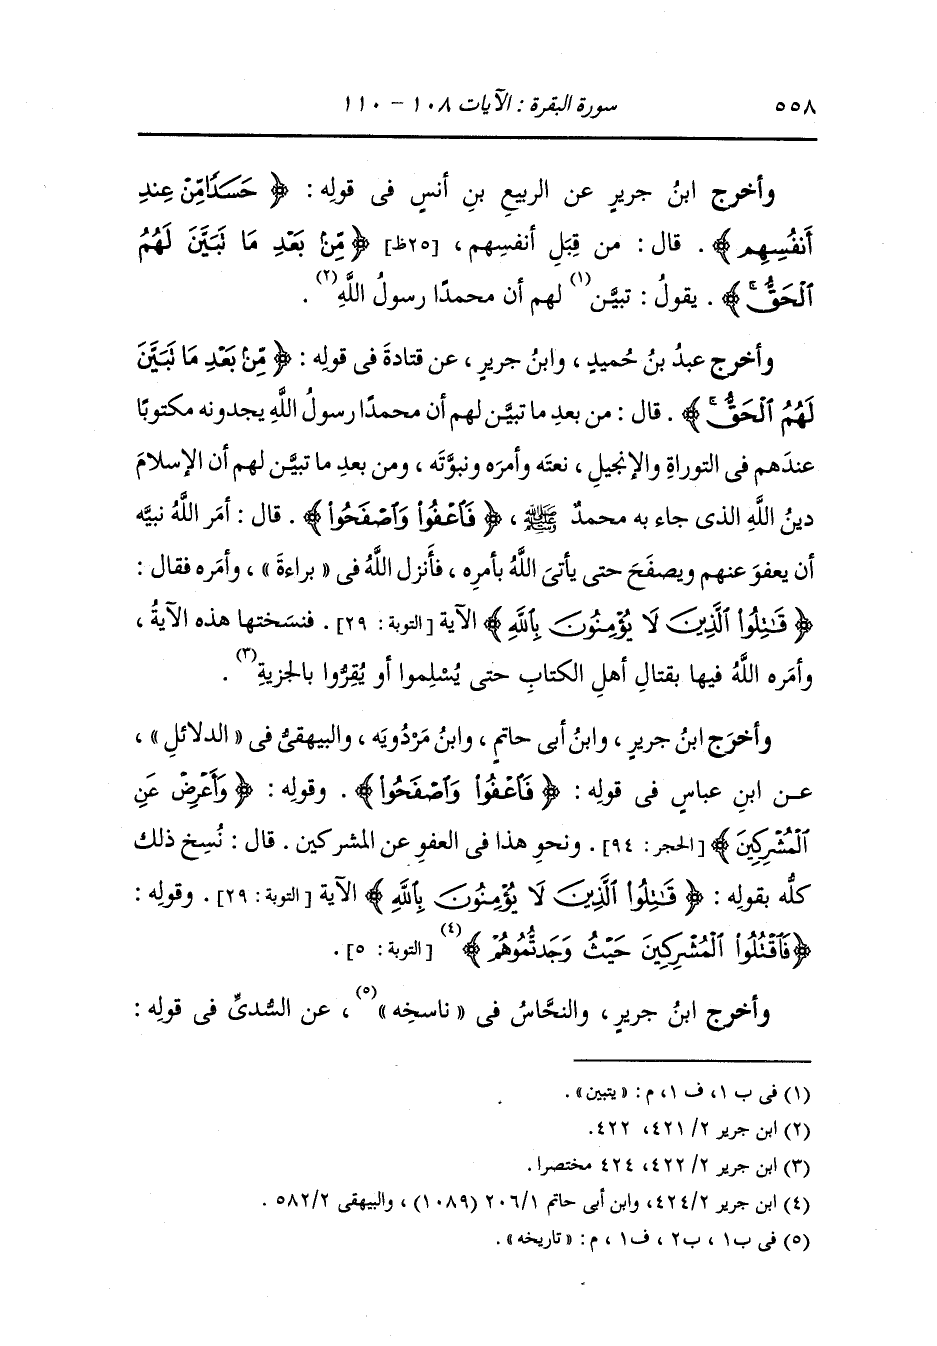 ٥٥٨ سورة البقرة : الآيات ١٠٨ - ١١٠
وأخرج ابنُ جريرٍ عن الربيعِ بنِ أنسٍ فى قولِه : ﴿ حَسَدًا مِّنْ عِندِ
أَنفُسِهِم ﴾ . قال : من قِبَلِ أنفسِهم ، [٢٥ظ] ﴿ مِّنۢ بَعْدِ مَا تَبَيَّنَ لَهُمُ
ٱلْحَقُّ ۖ ﴾ . يقولُ : تبيَّن(١) لهم أن محمدًا رسولُ اللَّهِ(٢) .
وأخرج عبدُ بنُ حُميدٍ ، وابنُ جريرٍ ، عن قتادةَ فى قولِه : ﴿ مِّنۢ بَعْدِ مَا تَبَيَّنَ
لَهُمُ ٱلْحَقُّ ۖ ﴾ . قال : من بعدِ ما تبيَّن لهم أن محمدًا رسولُ اللَّهِ يجدونه مكتوبًا
عندَهم فى التوراةِ والإنجيلِ ، نعتَه وأمرَه ونبوَّتَه ، ومن بعدِ ما تبيَّن لهم أن الإسلامَ
دينُ اللَّهِ الذى جاء به محمدٌ ﷺ ، ﴿ فَٱعْفُوا۟ وَٱصْفَحُوا۟ ﴾ . قال : أمَر اللَّهُ نبيَّه
أن يعفوَ عنهم ويصفَحَ حتى يأتىَ اللَّهُ بأمرِه ، فأَنزل اللَّهُ فى « براءةَ » ، وأمَره فقال :
﴿ قَـٰتِلُوا۟ ٱلَّذِينَ لَا يُؤْمِنُونَ بِٱللَّهِ ﴾ الآية [التوبة : ٢٩] . فنسَختها هذه الآيةُ ،
وأمَره اللَّهُ فيها بقتالِ أهلِ الكتابِ حتى يُسْلِموا أو يُقِرُّوا بالجزيةِ(٣) .
وأخرَج ابنُ جريرٍ ، وابنُ أبى حاتمٍ ، وابنُ مَرْدُويَه ، والبيهقىُّ فى « الدلائلِ » ،
عـن ابنِ عباسٍ فى قولِه : ﴿ فَٱعْفُوا۟ وَٱصْفَحُوا۟ ﴾ . وقولِه : ﴿ وَأَعْرِضْ عَنِ
ٱلْمُشْرِكِينَ ﴾ [الحجر : ٩٤] . ونحوِ هذا فى العفوِ عن المشركين . قال : نُسِخ ذلك
كلُّه بقولِه : ﴿ قَـٰتِلُوا۟ ٱلَّذِينَ لَا يُؤْمِنُونَ بِٱللَّهِ ﴾ الآية [التوبة : ٢٩] . وقولِه :
﴿ فَٱقْتُلُوا۟ ٱلْمُشْرِكِينَ حَيْثُ وَجَدتُّمُوهُمْ ﴾(٤) [التوبة : ٥] .
وأخرج ابنُ جريرٍ ، والنحَّاسُ فى « ناسخِه »(٥) ، عن السُّدىِّ فى قولِه :
(١) فى ب ١، ف ١، م : « يتبين» .
(٢) ابن جرير ٢/ ٤٢١، ٤٢٢.
(٣) ابن جرير ٢/ ٤٢٢، ٤٢٤ مختصرا .
(٤) ابن جرير ٤٢٤/٢، وابن أبى حاتم ٢٠٦/١ (١٠٨٩) ، والبيهقى ٥٨٢/٢ .
(٥) فى ب١ ، ب٢ ، ف١ ، م : «تاريخه» .